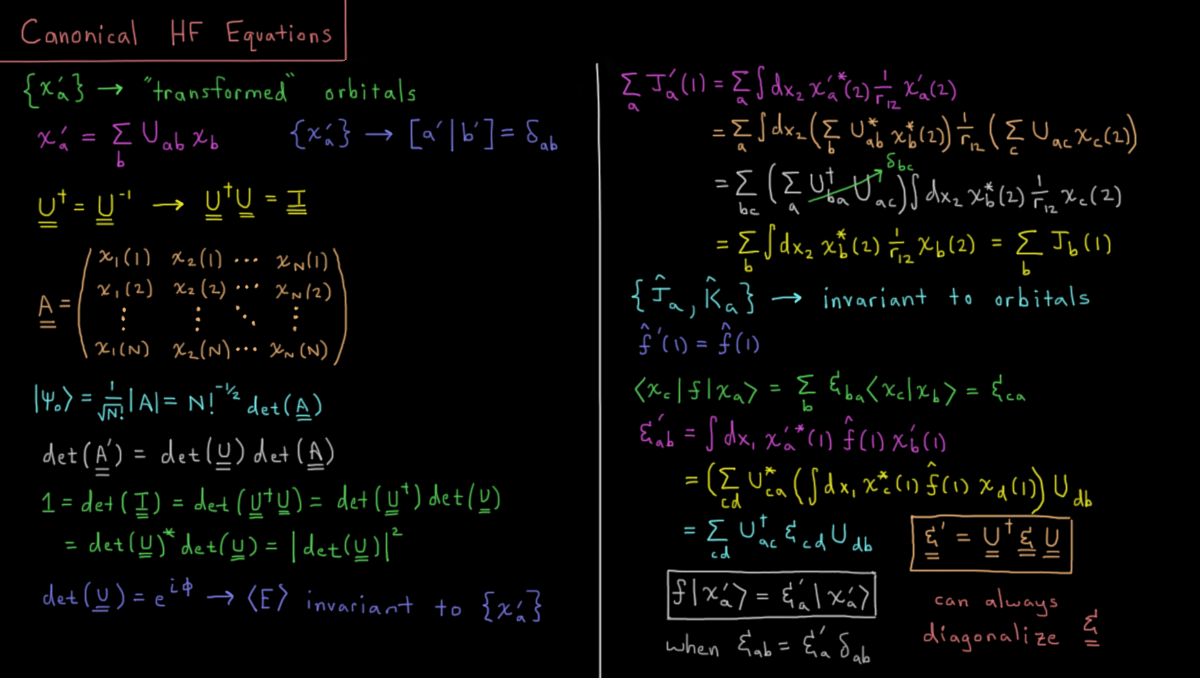 Canonical HF Equations
{χ′ₐ} → "transformed" orbitals
χ′ₐ = ∑_b U_ab χ_b {χ′ₐ} → [a′|b′] = δ_ab
U† = U⁻¹ → U†U = I
A = ( χ₁(1) χ₂(1) ⋯ χ_N(1)
χ₁(2) χ₂(2) ⋯ χ_N(2)
⋮ ⋮ ⋱ ⋮
χ₁(N) χ₂(N) ⋯ χ_N(N) )
|Ψ₀⟩ = 1/√N! |A| = N!^(-1/2) det(A)
det(A′) = det(U) det(A)
1 = det(I) = det(U†U) = det(U†) det(U)
= det(U)* det(U) = |det(U)|²
det(U) = e^(iϕ) → ⟨E⟩ invariant to {χ′ₐ}
∑_a J′ₐ(1) = ∑_a ∫dx₂ χ′ₐ*(2) 1/r₁₂ χ′ₐ(2)
= ∑_a ∫dx₂ (∑_b U*_ab χ_b*(2)) 1/r₁₂ (∑_c U_ac χ_c(2))
= ∑_bc (∑_a U†_ba U_ac) δ_bc ∫dx₂ χ_b*(2) 1/r₁₂ χ_c(2)
= ∑_b ∫dx₂ χ_b*(2) 1/r₁₂ χ_b(2) = ∑_b J_b(1)
{Ĵₐ, K̂ₐ} → invariant to orbitals
f̂′(1) = f̂(1)
⟨χ_c|f|χ_a⟩ = ∑_b ε_ba ⟨χ_c|χ_b⟩ = ε_ca
ε′_ab = ∫dx₁ χ′ₐ*(1) f̂(1) χ′_b(1)
= (∑_cd U*_ca (∫dx₁ χ_c*(1) f̂(1) χ_d(1)) U_db
= ∑_cd U†_ac ε_cd U_db
ε′ = U† ε U
f|χ′ₐ⟩ = ε′ₐ|χ′ₐ⟩
can always
diagonalize ε
when ε_ab = ε′ₐ δ_ab